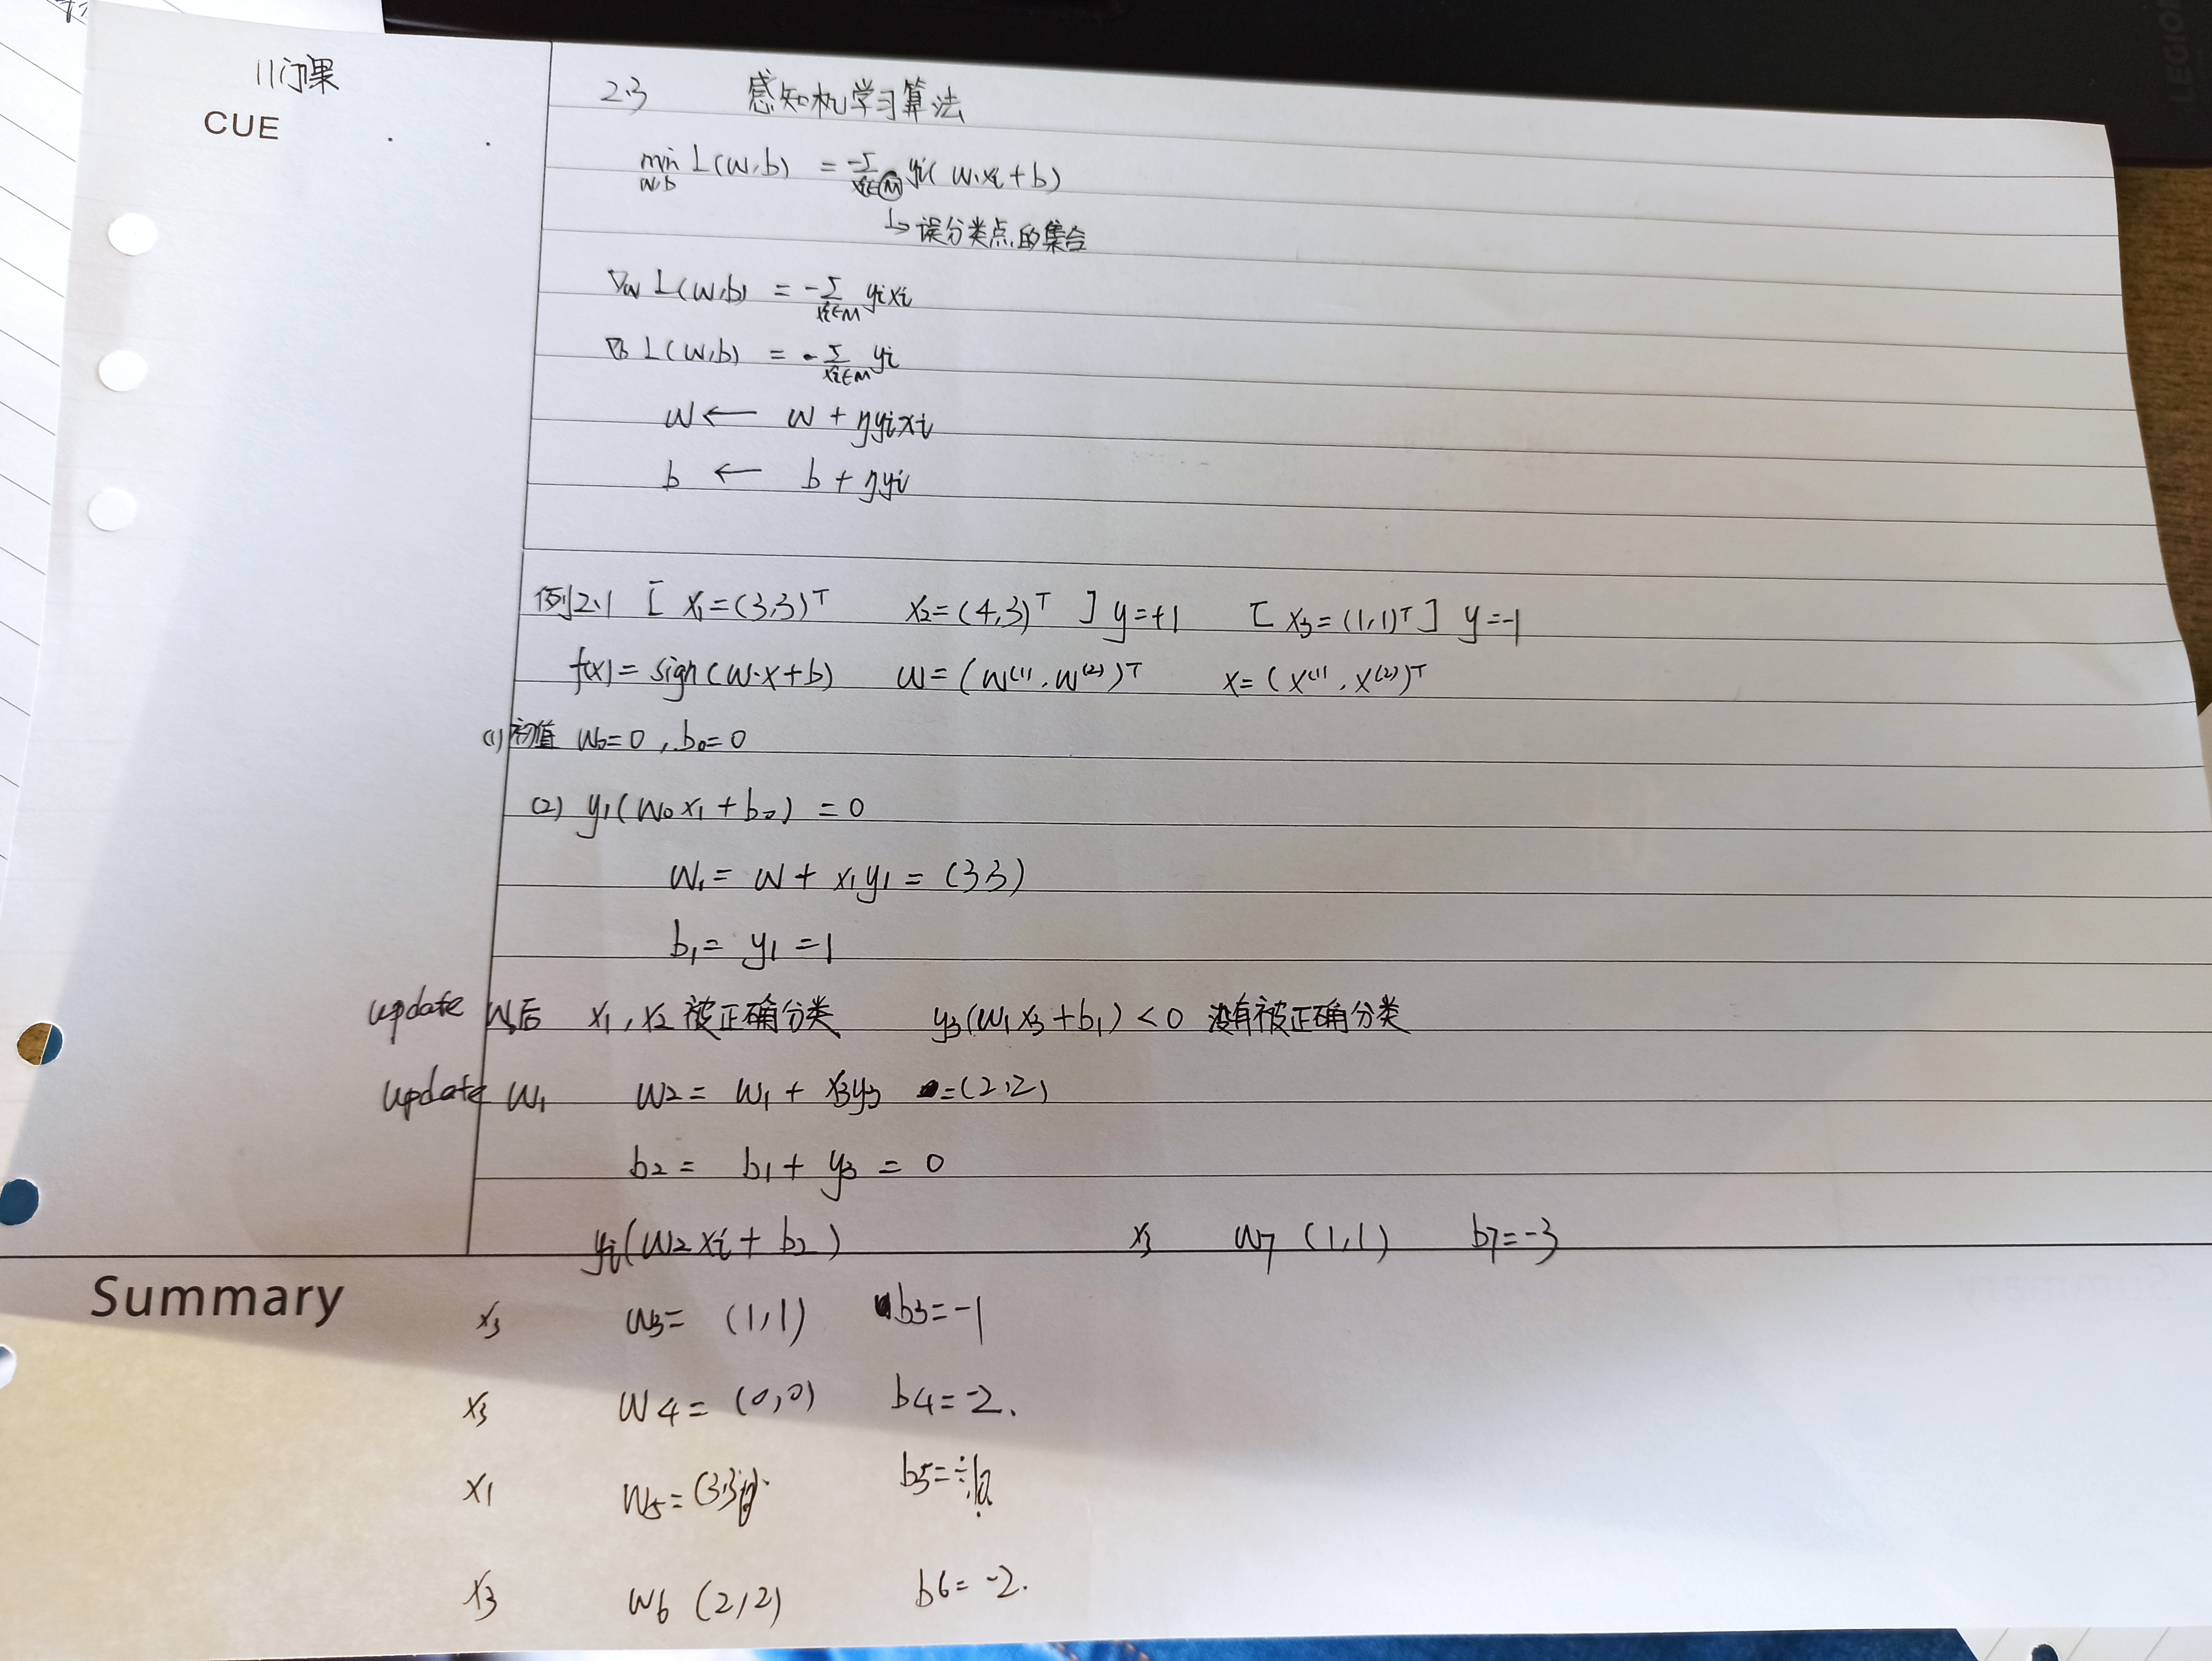 11门课
CUE
2.3 感知机学习算法
min L(w,b) = -Σ yi(w·xi+b)
w,b xi∈M
↳ 误分类点的集合
∇w L(w,b) = -Σ yixi
xi∈M
∇b L(w,b) = -Σ yi
xi∈M
w ← w + ηyixi
b ← b + ηyi
例2.1 [ x1=(3,3)ᵀ x2=(4,3)ᵀ ] y=+1 [ x3=(1,1)ᵀ ] y=-1
f(x)=sign(w·x+b) w=(w⁽¹⁾,w⁽²⁾)ᵀ x=(x⁽¹⁾,x⁽²⁾)ᵀ
(1) 初值 w0=0, b0=0
(2) y1(w0x1+b0) = 0
w1= w + x1y1 = (3,3)
b1= y1 =1
update w后 x1,x2 被正确分类 y3(w1x3+b1)<0 没有被正确分类
update w1 w2= w1 + x3y3 =(2,2)
b2= b1+ y3 = 0
yi(w2xi+b2) x3 w7 (1,1) b7=-3
Summary
x3 w3= (1,1) b3=-1
x3 w4= (0,0) b4=-2.
x1 w5=(3,3) b5=
x3 w6 (2,2) b6=-2.